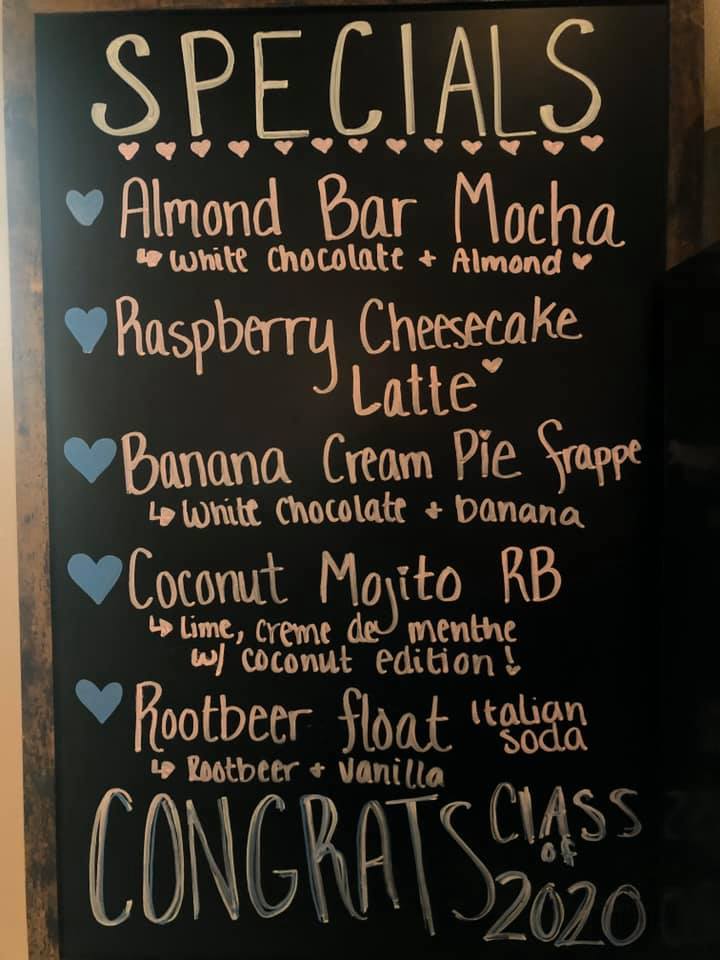 SPECIALS
Almond Bar Mocha
White Chocolate + Almond
Raspberry Cheesecake
Latte
Banana Cream Pie frappe
White Chocolate + banana
Coconut Mojito RB
Lime, creme de menthe
w/ coconut edition!
Rootbeer float Italian
soda
Rootbeer + Vanilla
CONGRATS CLASS
of
2020